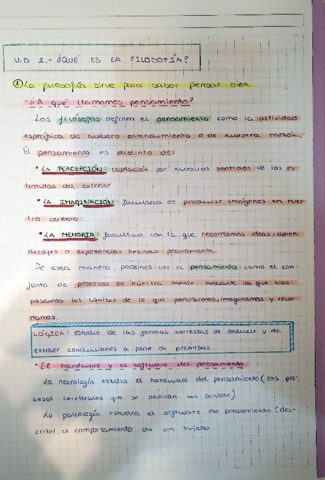 U.D 2.- ¿QUE ES LA FILOSOFÍA?
① La filosofía sirve para saber pensar bien
¿A qué llamamos pensamiento?
Los filósofos definen el pensamiento como la actividad
específica de nuestro entendimiento o de nuestra razón.
El pensamiento es distinto de:
• LA PERCEPCIÓN: captación por nuestros sentidos de los es-
tímulos del exterior
• LA IMAGINACIÓN: facultad de producir imágenes en nues-
tro cerebro
• LA MEMORIA: facultad con la que recordamos ideas, apren
dizajes o experiencias previamente.
De esta manera, podemos ver el pensamiento como el con-
junto de procesos de nuestra mente mediante la que tras
pasamos los límites de lo que percibimos, imaginamos y recor
damos.
LÓGICA: estudio de las formas correctas de deducir y de
extraer conclusiones a partir de premisas.
• El hardware y el software del pensamiento
La neurología estudia el hardware del pensamiento (los pro
cesos cerebrales que se activan al pensar)
La psicología estudia el software del pensamiento (des-
cribir el comportamiento de un sujeto